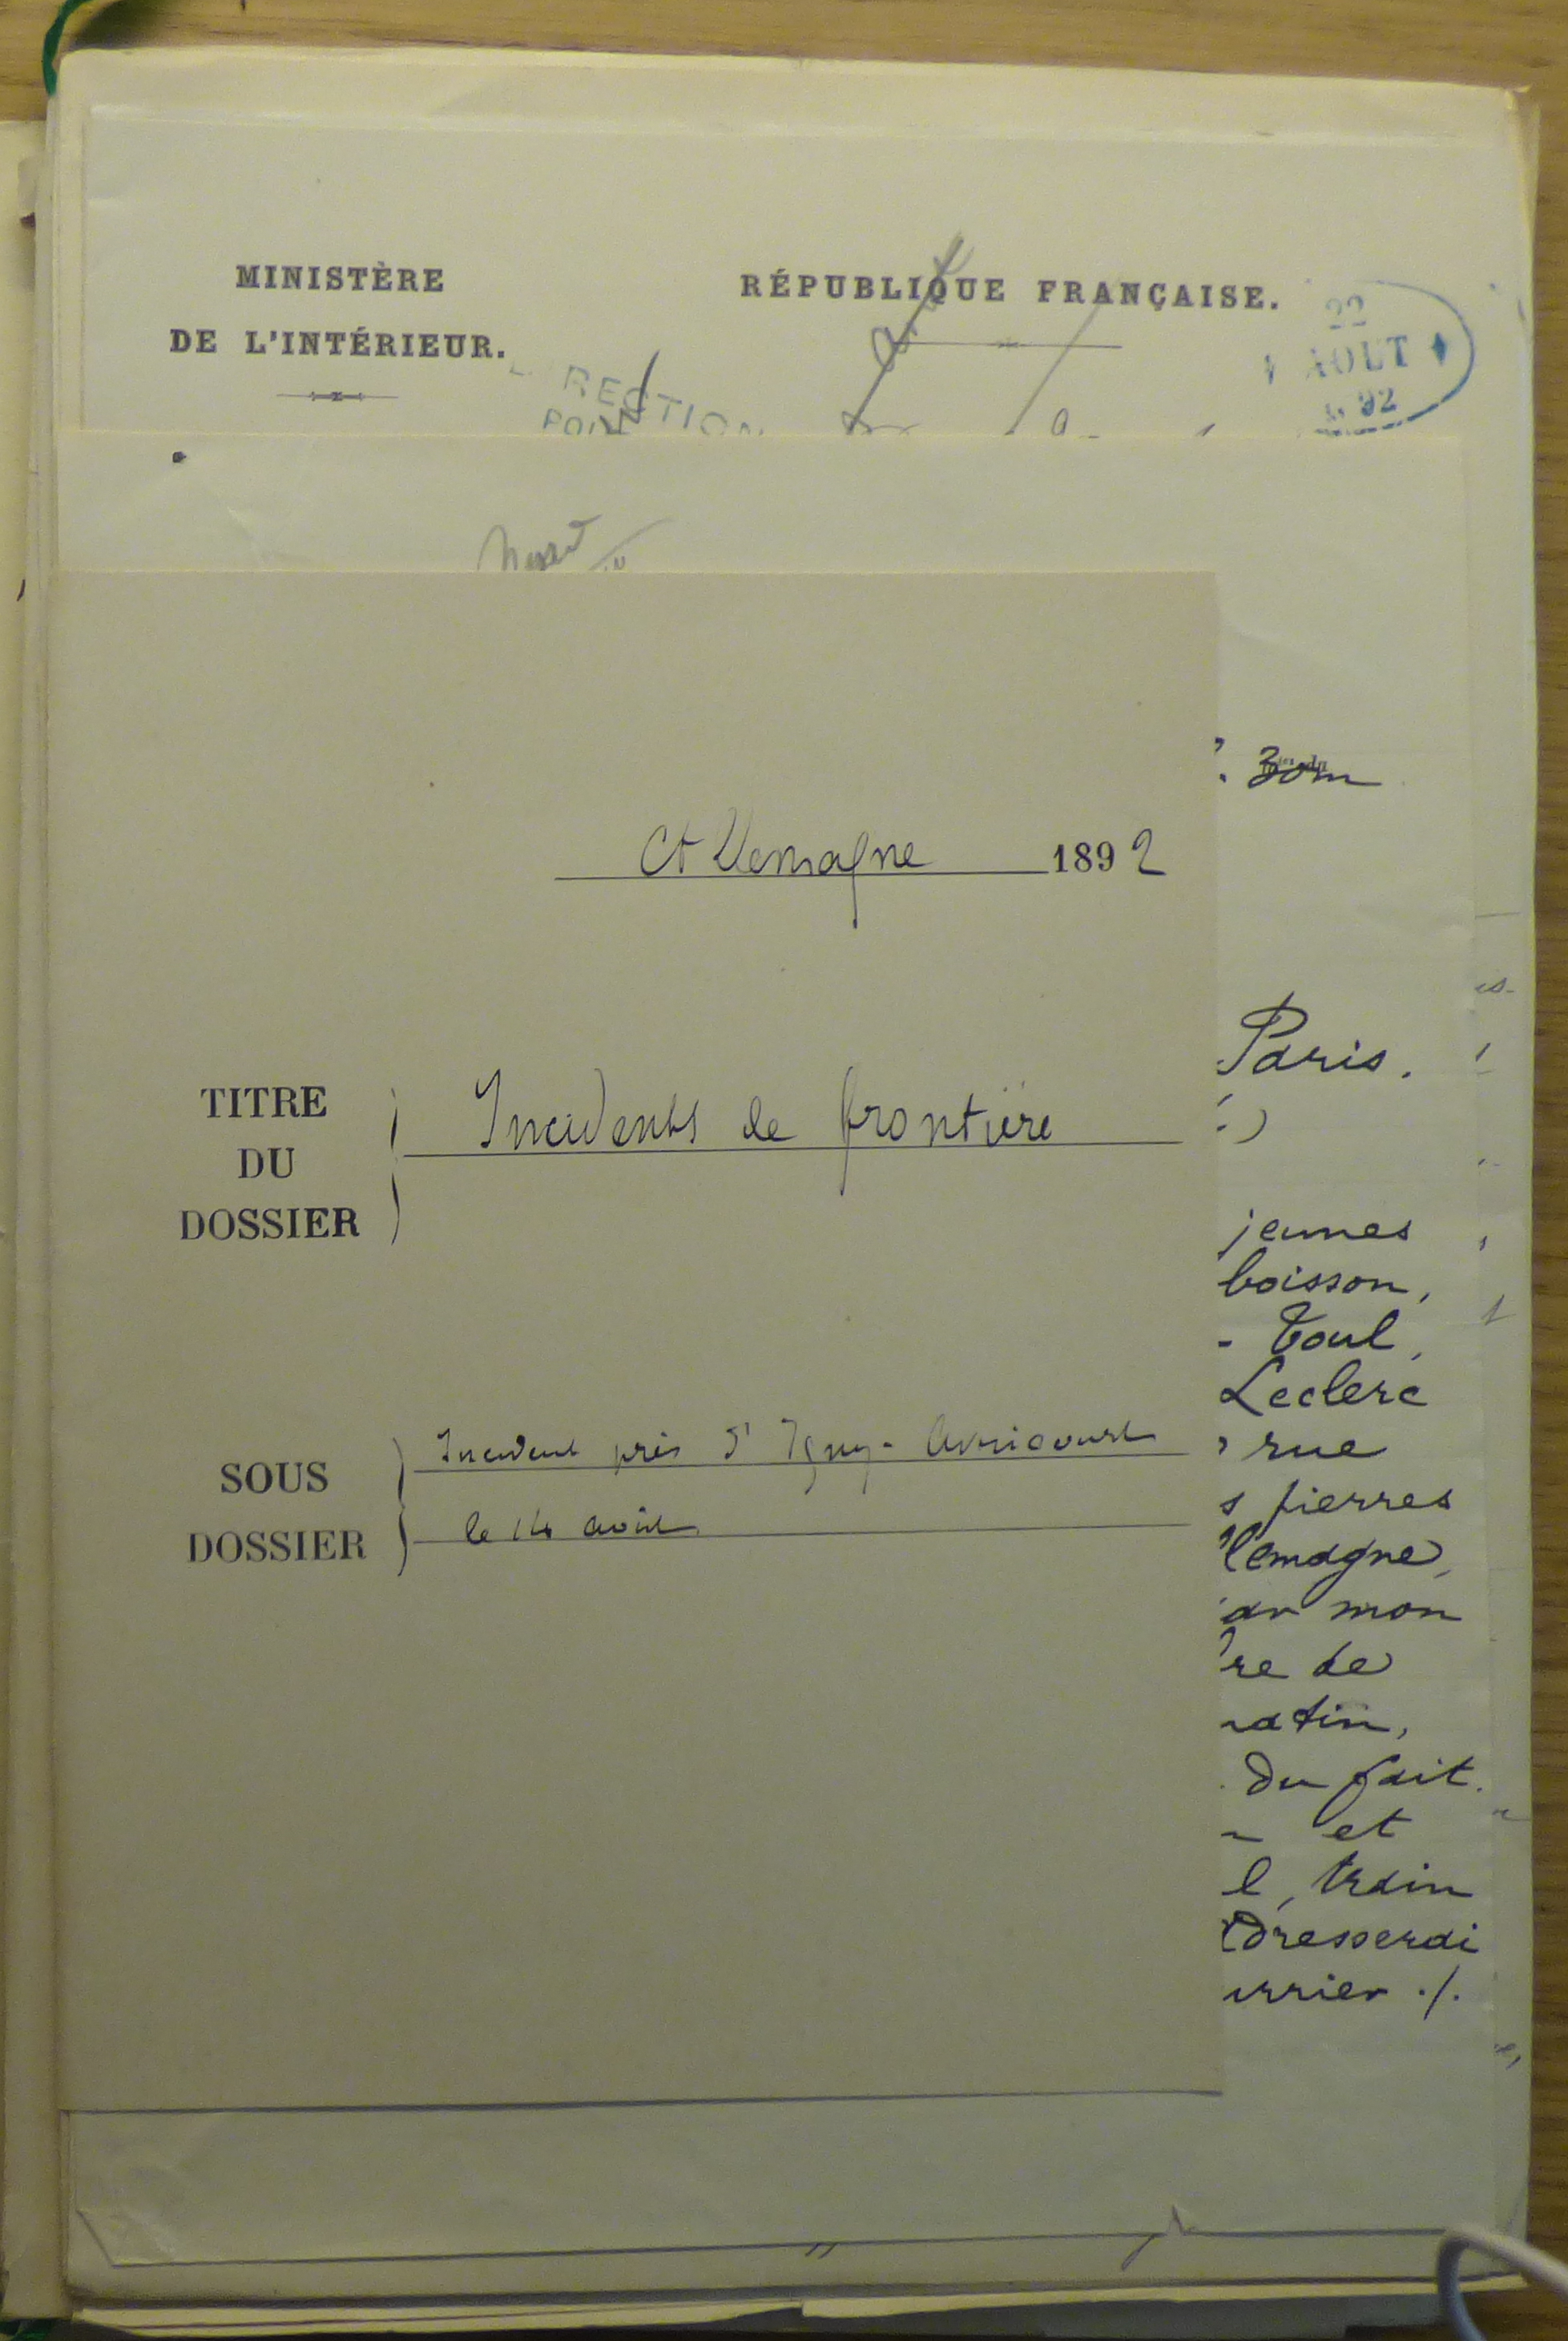 MINISTÈRE
DE L'INTÉRIEUR.
RÉPUBLIQUE FRANÇAISE.
22
AOUT
92
RECTION
Allemagne 1892
TITRE
DU
DOSSIER
Incidents de frontière
SOUS
DOSSIER
Incident près d'Igney-Avricourt
le 14 août
30m
Paris.
jeunes
boisson,
- Toul,
Leclerc
rue
s pierres
lemagne,
ar mon
re de
atin,
Du fait.
et
l, train
dresserai
urrier ./.